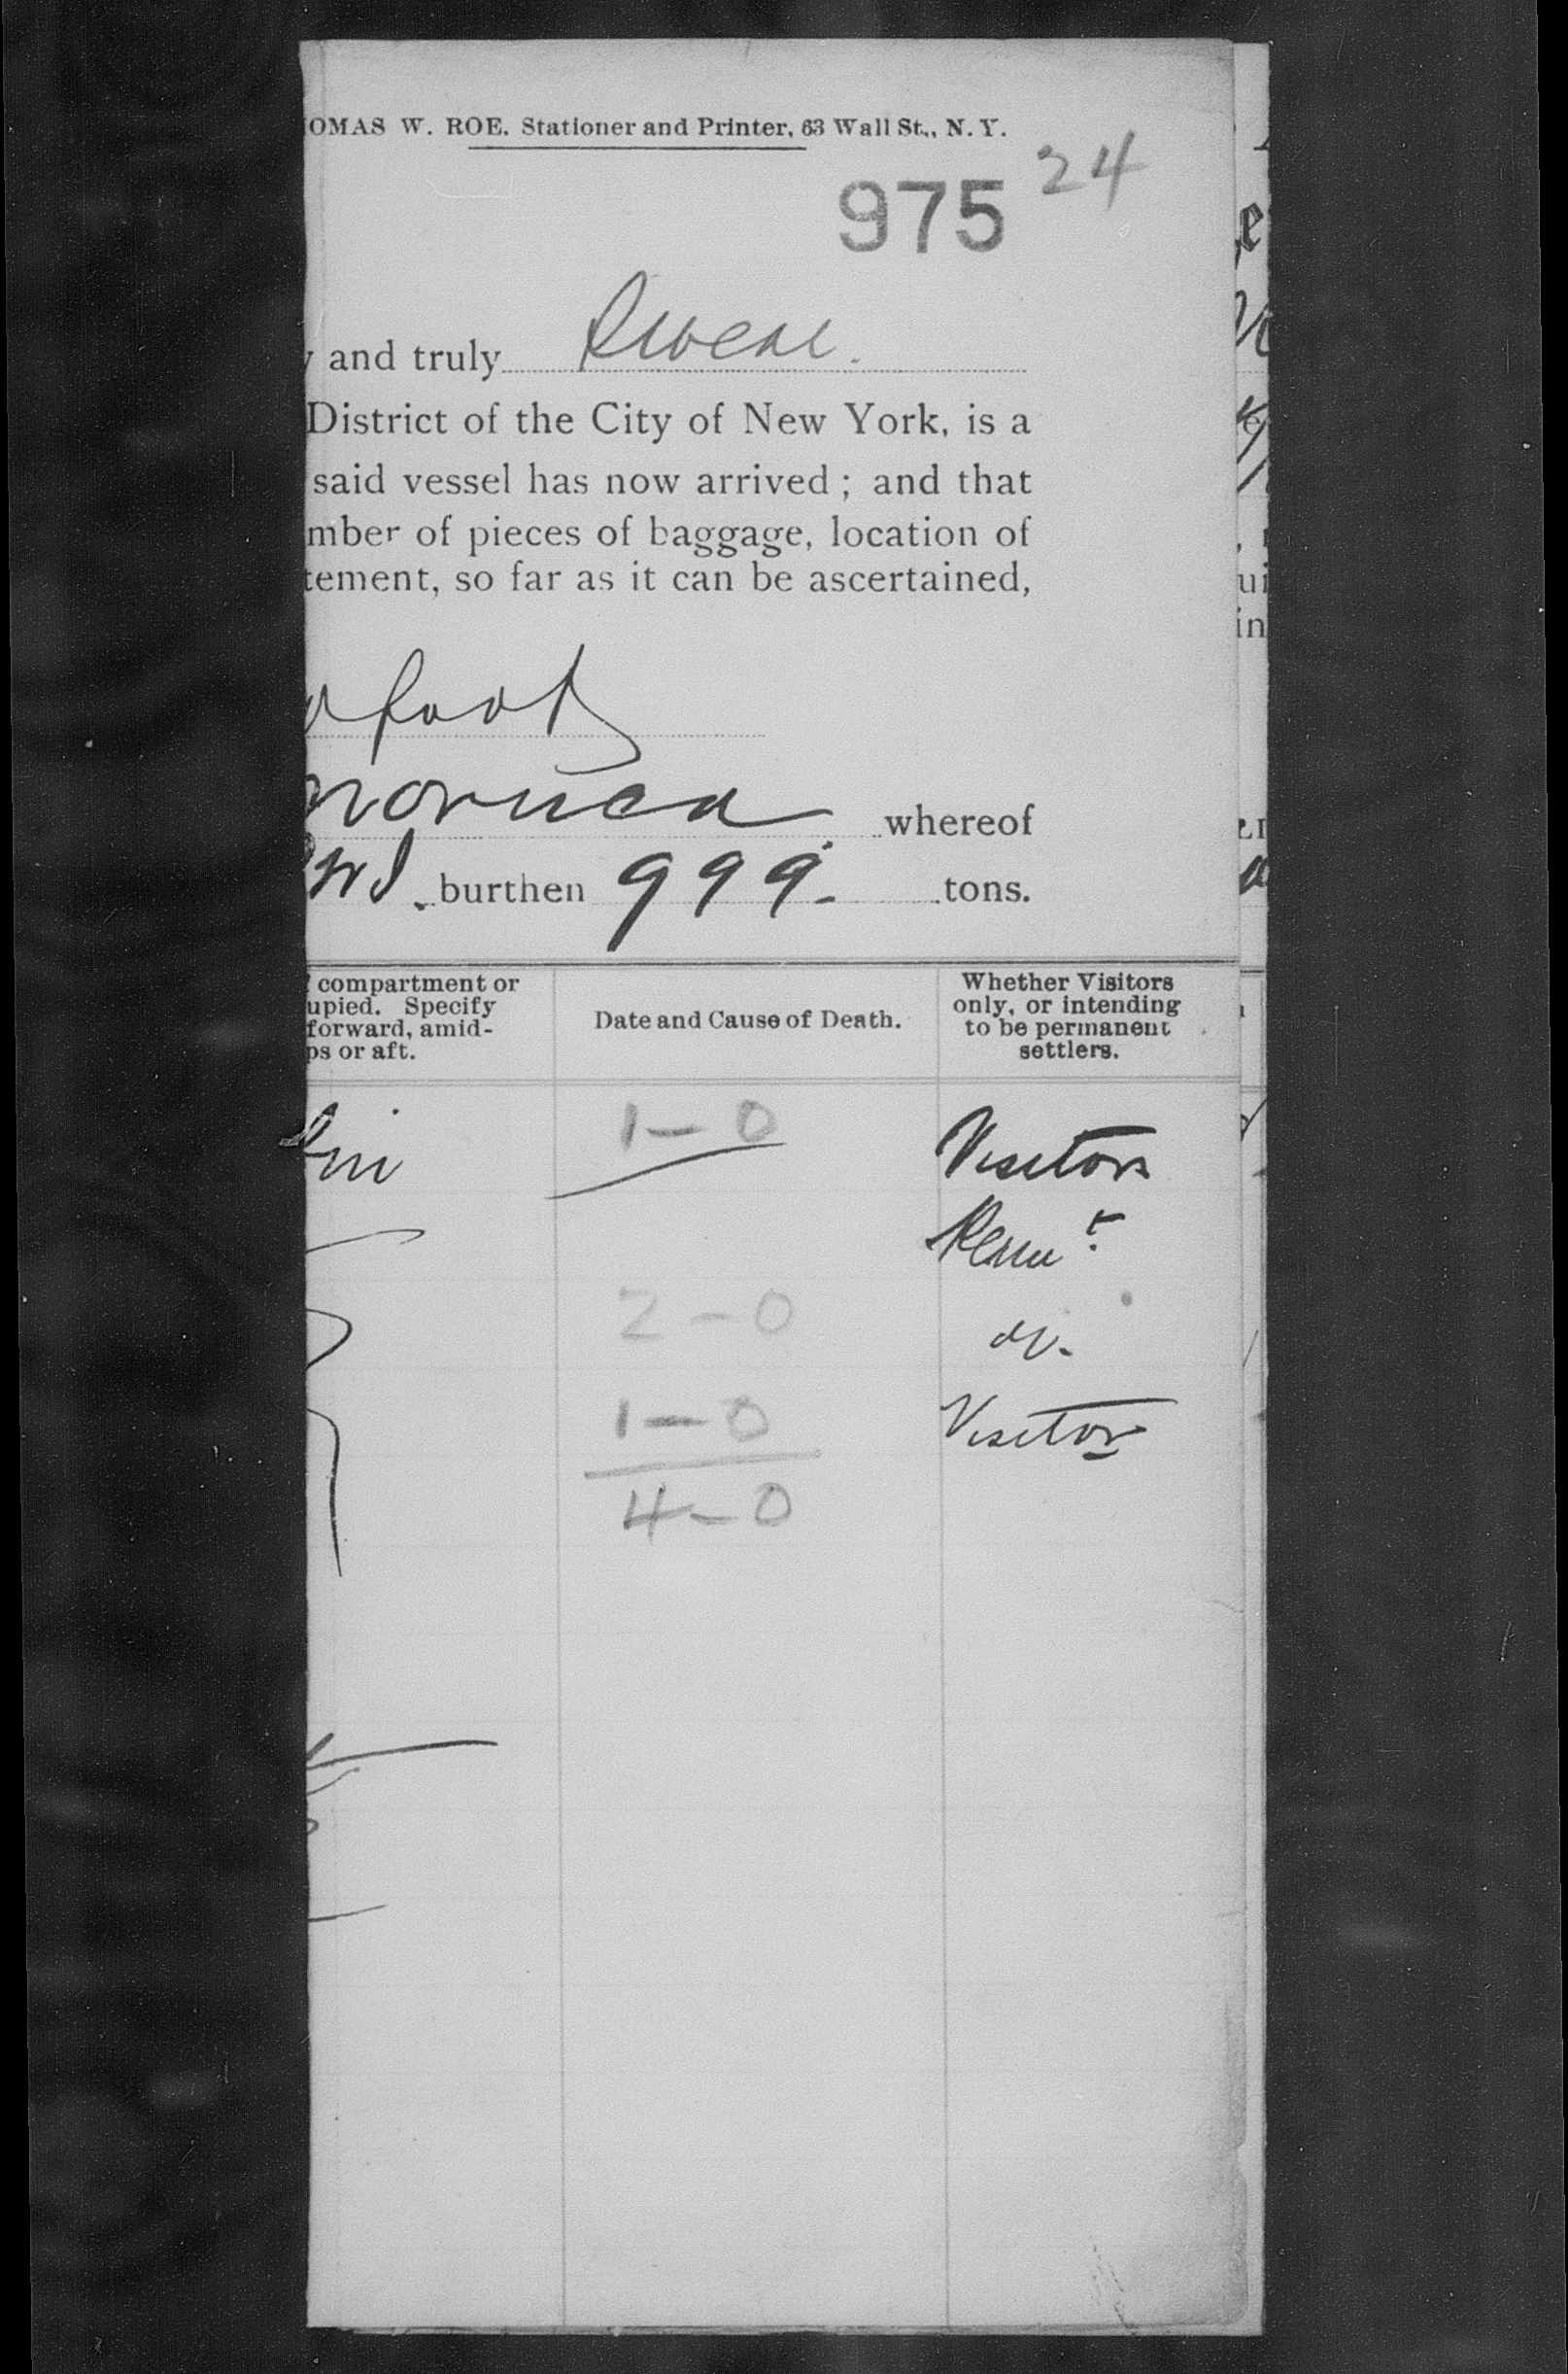 OMAS W. ROE, Stationer and Printer, 63 Wall St., N. Y.
975 24
y and truly swear.
District of the City of New York, is a
said vessel has now arrived ; and that
mber of pieces of baggage, location of
tement, so far as it can be ascertained,
whereof
burthen 999. tons.
compartment or
upied. Specify
forward, amid-
ps or aft.
Date and Cause of Death.
Whether Visitors
only, or intending
to be permanent
settlers.
1 — 0
Visitors
Perm t
2 — 0
do.
1 — 0
Visitor
4 — 0